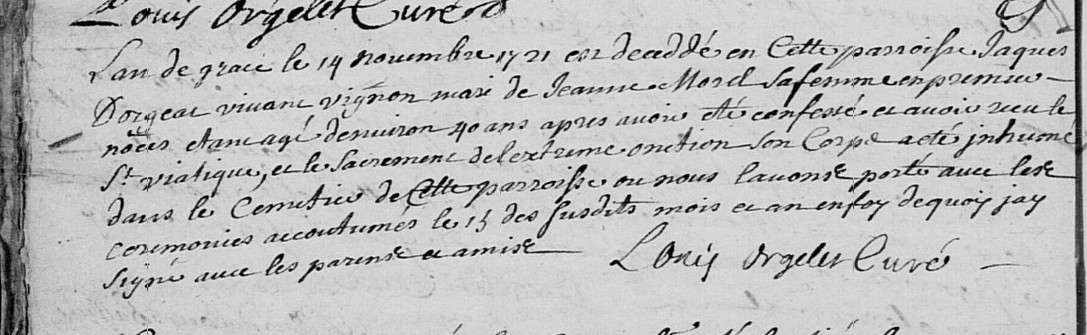 Louis Orgelet Curé
Lan de grace le 14 novembre 1721 est deceddé en Cette parroisse Jaques
Dorgeat vivant vignron mari de Jeanne Morel sa femme en premier
noces etant agé denviron 40 ans apres avoir eté confessé et avoir receu le
St. viatique, et le Sacrement de lextreme onction son Corps a eté inhumé
dans le Cemitie de Cette parroisse ou nous lavons porté avec les
ceremonies accoutumés le 15 des susdits mois et an en foy de quoy jay
signé avec les parens et amis
Louis Orgelet Curé